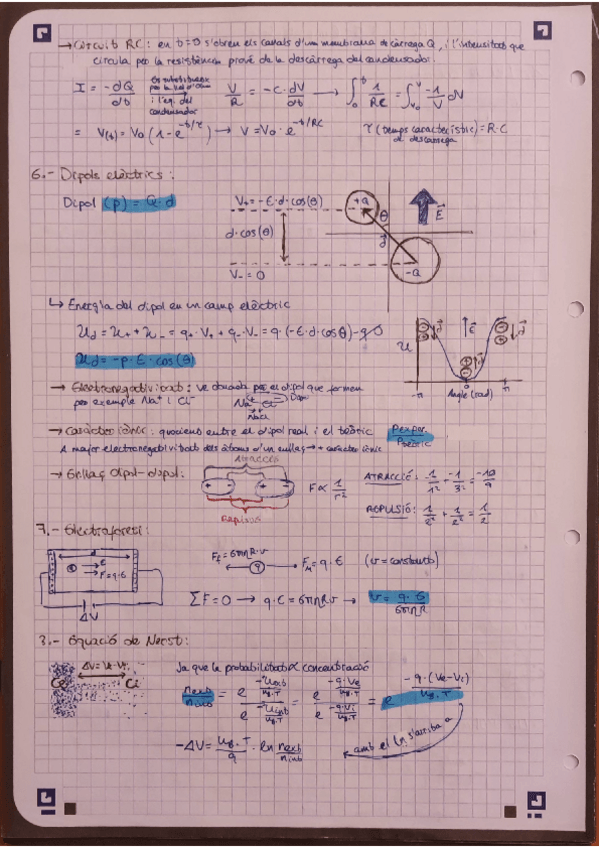 → Circuit RC: en t=0 s'obren els canals d'una membrana de càrrega Q, i l'intensitat que
circula per la resistència prové de la descàrrega del condensador:
I = -dQ/dt → V/R = -C·dV/dt → ∫₀ᵗ 1/RC = ∫ -1/V dV
= V(t) = V₀(1-e^(-t/τ)) → V = V₀·e^(-t/RC) τ (temps característic) = R·C
de descàrrega
6.- Dipols elèctrics:
Dipol (p) = Q·d
V₊ = -E·d·cos(θ)
d·cos(θ)
V₋ = 0
+Q
θ
d
-Q
E
↳ Energia del dipol en un camp elèctric
U_d = U₊ + U₋ = q₊·V₊ + q₋·V₋ = q·(-E·d·cosθ) - q·0
U_d = -p·E·cos(θ)
U
E
-π
0
π
Angle (rad)
→ Electronegativitat: ve donada pel dipol que formen
per exemple Na⁺ i Cl⁻
NaCl
→ Caràcter iònic: quocient entre el dipol real i el teòric Pexper./Pteòric
A major electronegativitat dels àtoms d'un enllaç → + caràcter iònic
→ Enllaç dipol-dipol:
ATRACCIÓ
- +
+ -
REPULSIÓ
F ∝ 1/r²
ATRACCIÓ: -1/1² + -1/3² = -10/9
REPULSIÓ: 1/2² + 1/2² = 1/2
7.- Electroforesi:
d
E
F=q·E
ΔV
F_f = 6πηR·v
q
= q·E
(v = constant)
ΣF=0 → q·E = 6πηRv → v = q·E/6πηR
3.- Equació de Nernst:
ΔV = Ve-Vi
Ce
Ci
Ja que la probabilitat ∝ concentració
n_ext/n_int = e^(-U_ext/k_B·T) / e^(-U_int/k_B·T) = e^(-q·Ve/k_B·T) / e^(-q·Vi/k_B·T) = e^(-q·(Ve-Vi)/k_B·T)
-ΔV = k_B·T/q · ln n_ext/n_int
amb el ln s'arriba a